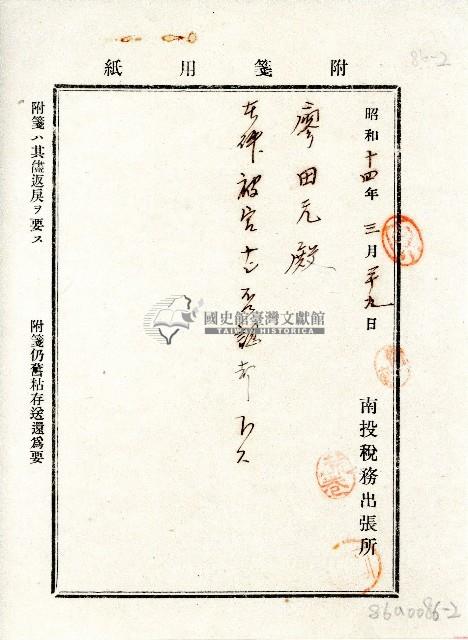 86-2
附箋用紙
昭和十四年三月廿九日
南投稅務出張所
廖田元殿
本件被官
國史館臺灣文獻館
TAIWAN HISTORICA
附箋ハ其儘返戾ヲ要ス
附箋仍舊粘存送還爲要
86a0086-2